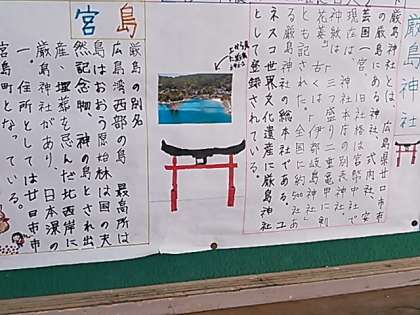 厳島神社
厳島神社とは、広島県廿日市市
の厳島にある神社。式内社、安
芸国一宮。旧社格は官幣中社で
現在は神社本庁の別表神社。神
紋は三つ盛り二重亀甲に剣
花菱」。古くは「伊都岐島神社」
とも記された。全国に約500社あ
る厳島神社の総本社である。ユ
ネスコ世界文化遺産に厳島神社
として登録されている。
宮島
厳島の別名
広島湾西部の島 最高所は
島はおおう原始林は国の天
然記念物、神の島とされ出
産、埋葬を忌んだ北西岸に
厳島神社があり、日本
一。住所としては廿日市市
宮島町となっている。